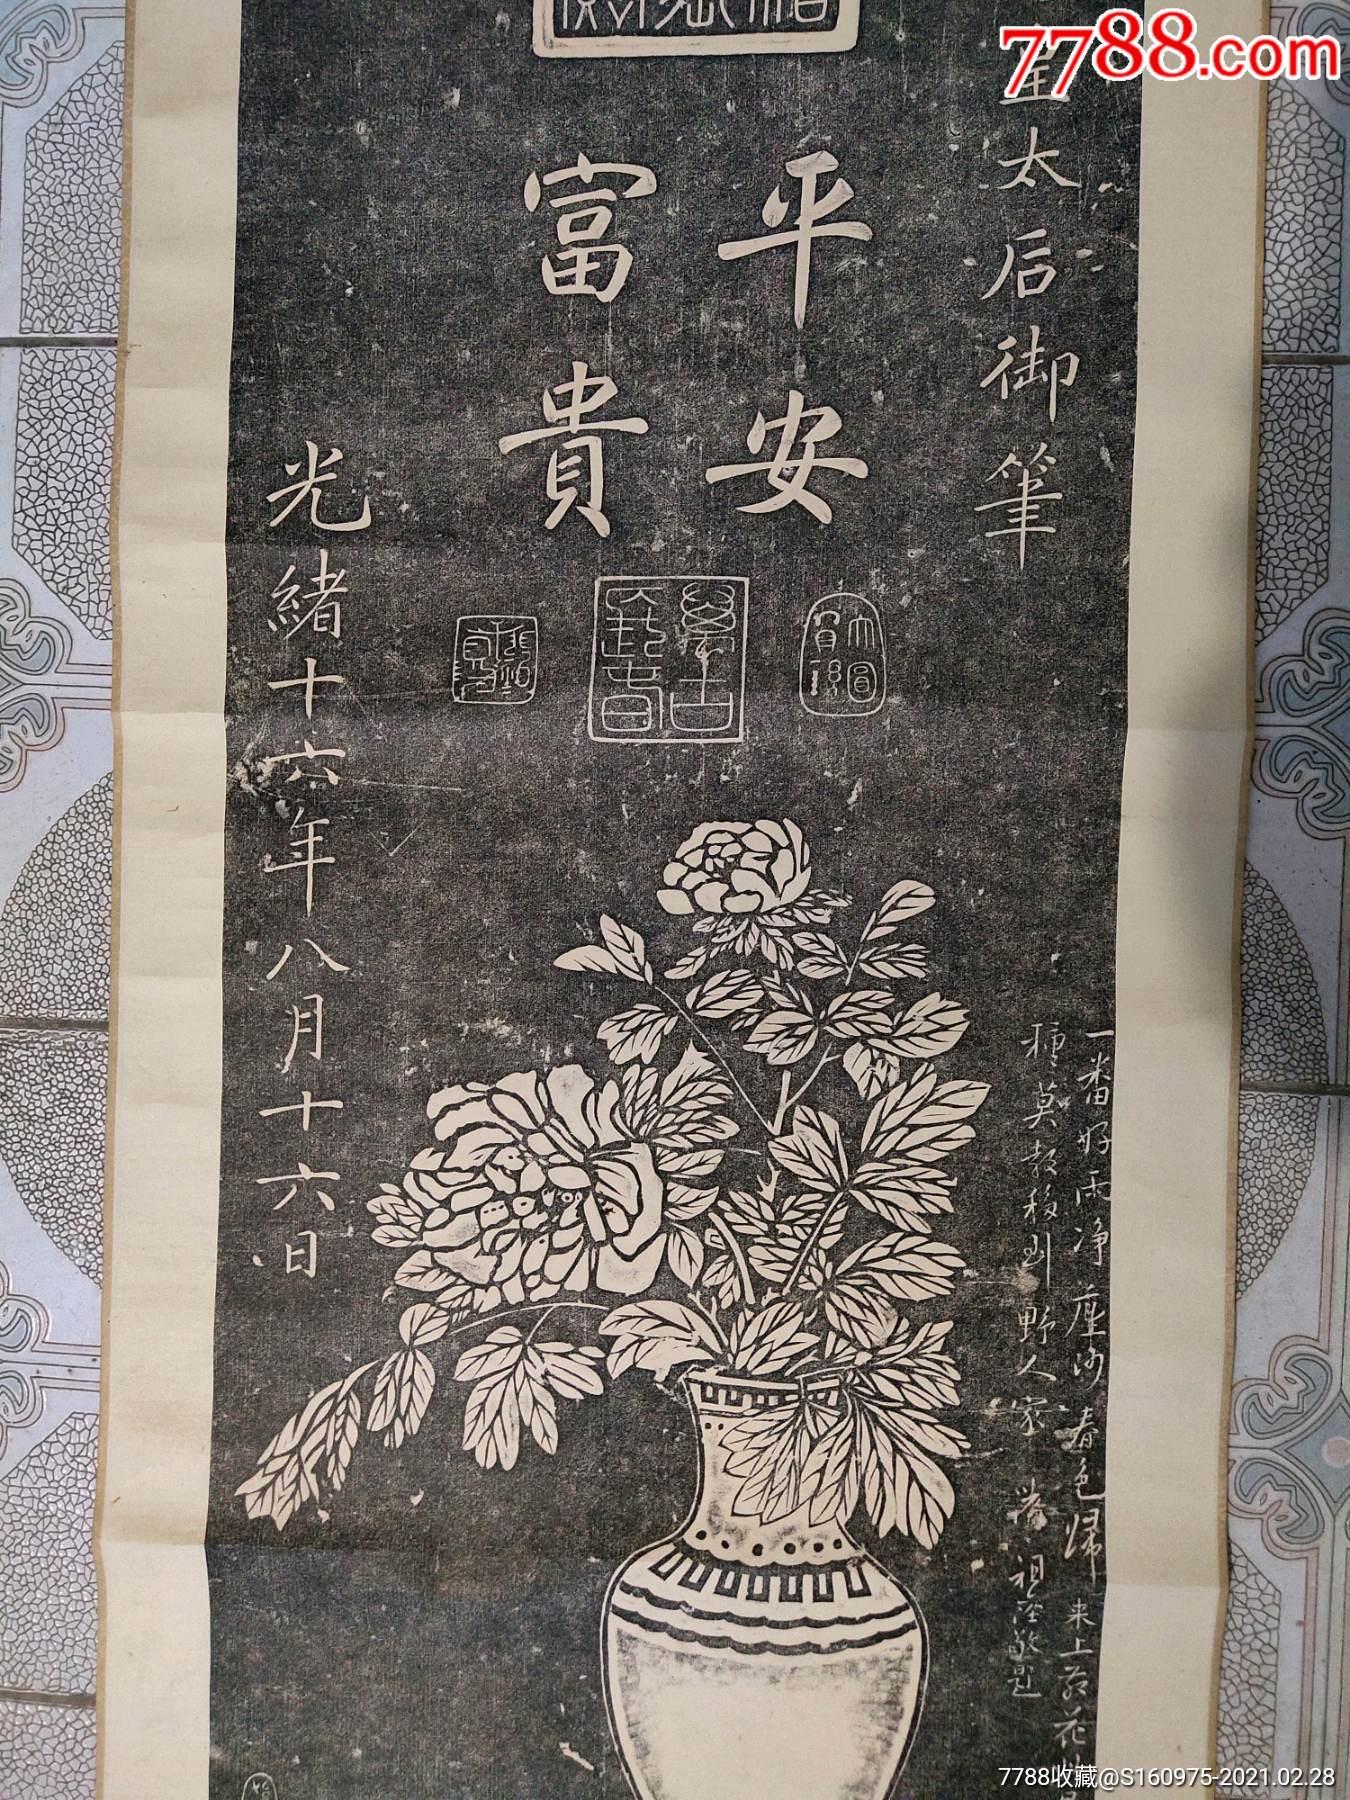 7788.com
皇太后御筆
平安
富貴
光緒十六年八月十六日
一番好雨净塵沙春色歸来上苑花
種莫教移到野人家 潘祖蔭敬題
7788收藏@S160975-2021.02.28